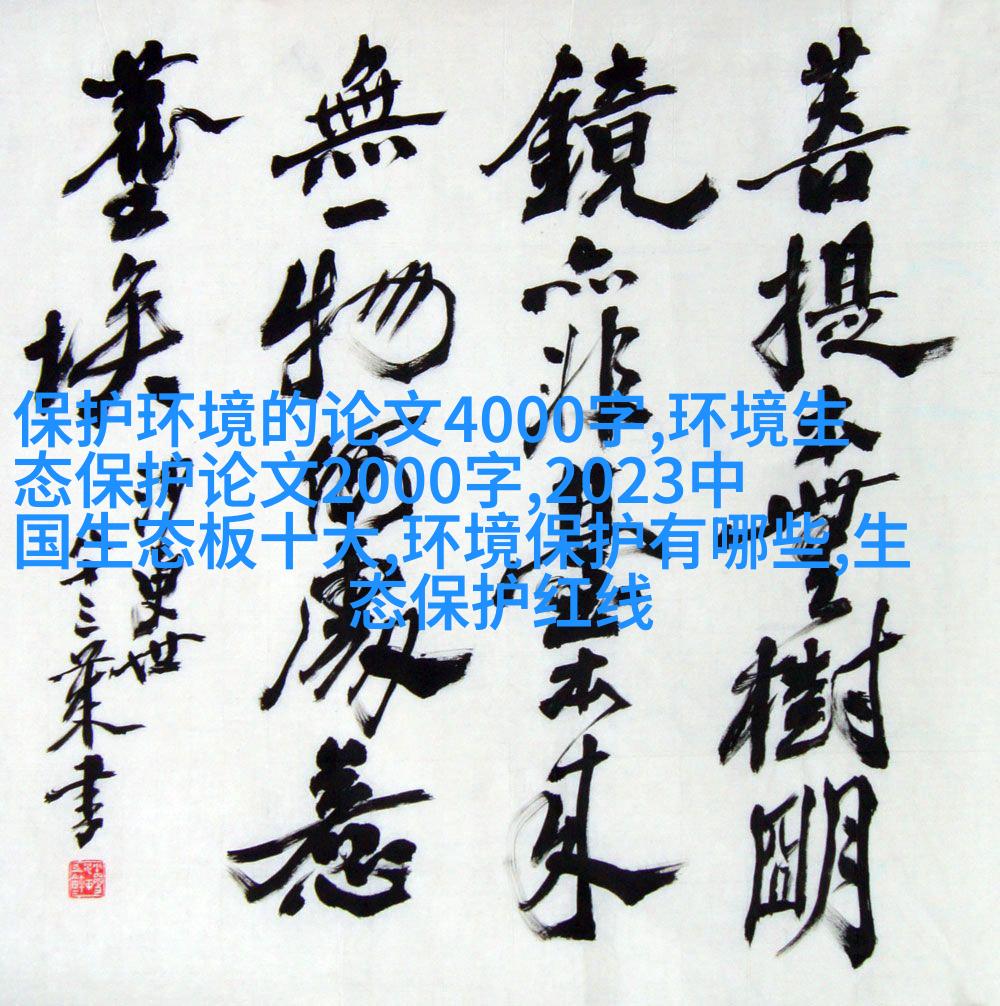 保护环境的论文4000字,环境生
态保护论文2000字,2023中
国生态板十大,环境保护有哪些,生
态保护红线
菩提本無樹明
鏡亦非臺本來
無一物何處惹
塵埃